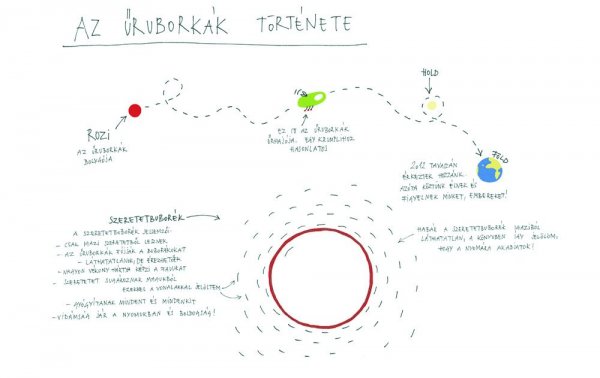 AZ ŰRUBORKÁK TÖRTÉNETE
HOLD
ROZI
AZ ŰRUBORKÁK
BOLYGÓJA
EZ ITT AZ ŰRUBORKÁK
ŰRHAJÓJA. EGY KRUMPLIHOZ
HASONLATOS
FÖLD
2012 TAVASZÁN
ÉRKEZTEK HOZZÁNK.
AZÓTA KÖZTÜNK ÉLNEK ÉS
FIGYELNEK MINKET, EMBEREKET!
SZERETETBUBORÉK
A SZERETETBUBORÉK JELLEMZŐI:
- CSAK IGAZI SZERETETBŐL LEHET
- AZ ŰRUBORKÁK FÚJJÁK A BUBORÉKOKAT
- LÁTHATATLANOK, DE ÉREZHETŐEK
- NAGYON VÉKONY HÁRTYA KÉPZI A FALUKAT
- SZERETETET SUGÁROZNAK MAGUKBÓL
EZEKKEL A VONALAKKAL JELÖLTEM
- GYÓGYÍTANAK MINDENT ÉS MINDENKIT
- VIDÁMSÁG JÁR A NYOMUKBAN ÉS BOLDOGSÁG!
HABÁR A SZERETETBUBORÉK IGAZÁBÓL
LÁTHATATLAN, A KÖNYVBEN ÍGY JELÖLÖM,
HOGY A NYOMÁRA AKADJATOK!